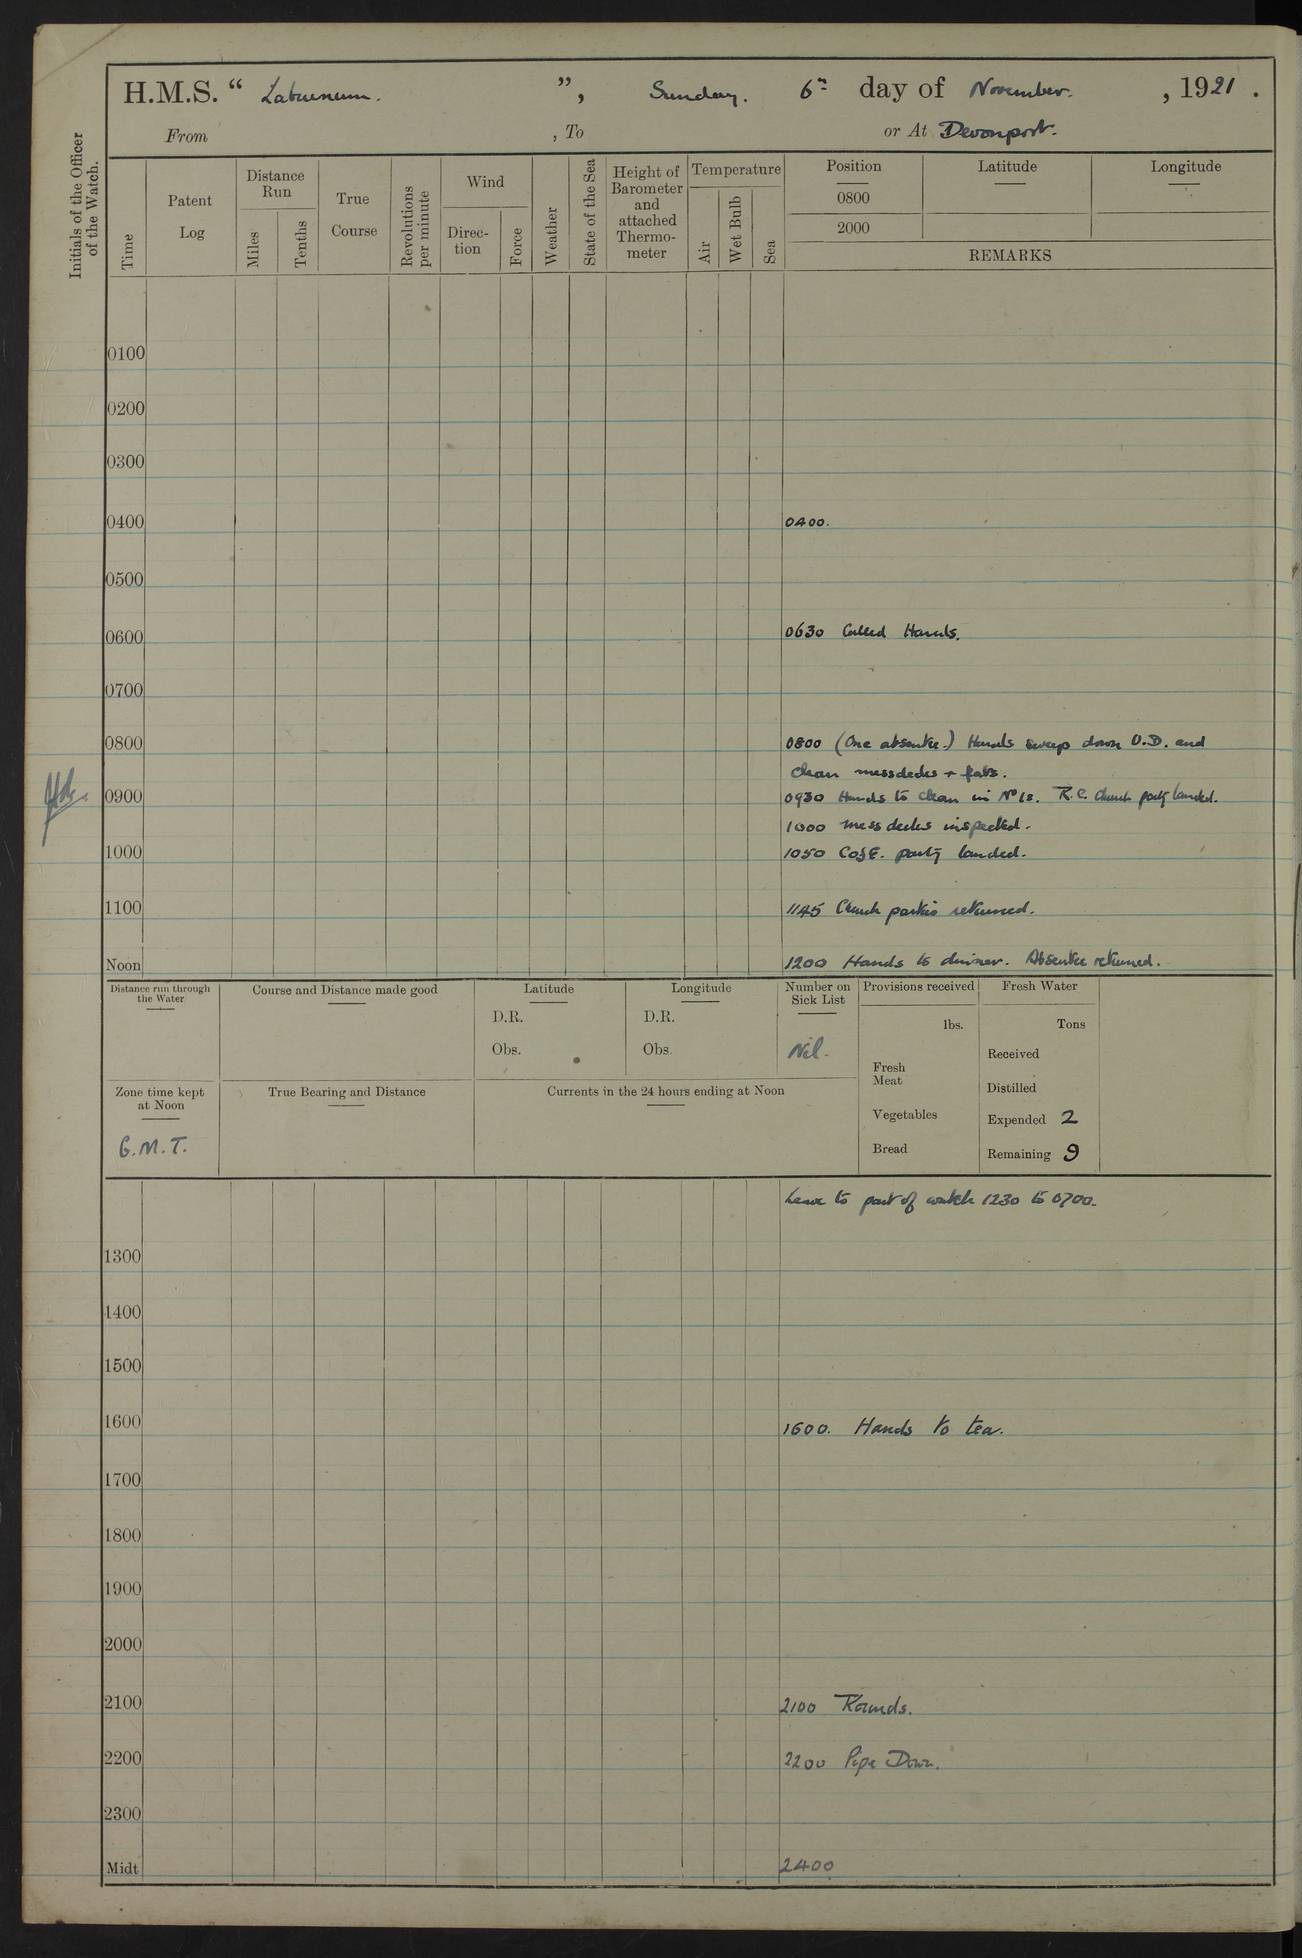 H.M.S. “ Laburnum. ”, Sunday. 6th day of November. , 1921 .
From , To or At Devonport.
Initials of the Officer of the Watch.
Time
Patent Log
Distance Run
Miles
Tenths
True Course
Revolutions per minute
Wind
Direction
Force
Weather
State of the Sea
Height of Barometer and attached Thermometer
Temperature
Air
Wet Bulb
Sea
Position Latitude Longitude
0800
2000
REMARKS
0100
0200
0300
0400 0400.
0500
0600 0630 Called Hands.
0700
0800 0800 (One absentee.) Hands sweep down U.D. and
clean messdecks + flats.
0900 0930 Hands to clean in No 1s. R.C. Church party landed.
1000 mess decks inspected.
1000 1050 C of E. party landed.
1100 1145 Church parties returned.
Noon 1200 Hands to dinner. Absentee returned.
Distance run through the Water
Course and Distance made good
Latitude
D.R.
Obs.
Longitude
D.R.
Obs.
Number on Sick List
Nil.
Provisions received
lbs.
Fresh Meat
Vegetables
Bread
Fresh Water
Tons
Received
Distilled
Expended 2
Remaining 9
Zone time kept at Noon
G.M.T.
True Bearing and Distance
Currents in the 24 hours ending at Noon
Leave to part of watch 1230 to 0700.
1300
1400
1500
1600 1600. Hands to tea.
1700
1800
1900
2000
2100 2100 Rounds.
2200 2200 Pipe Down.
2300
Midt 2400